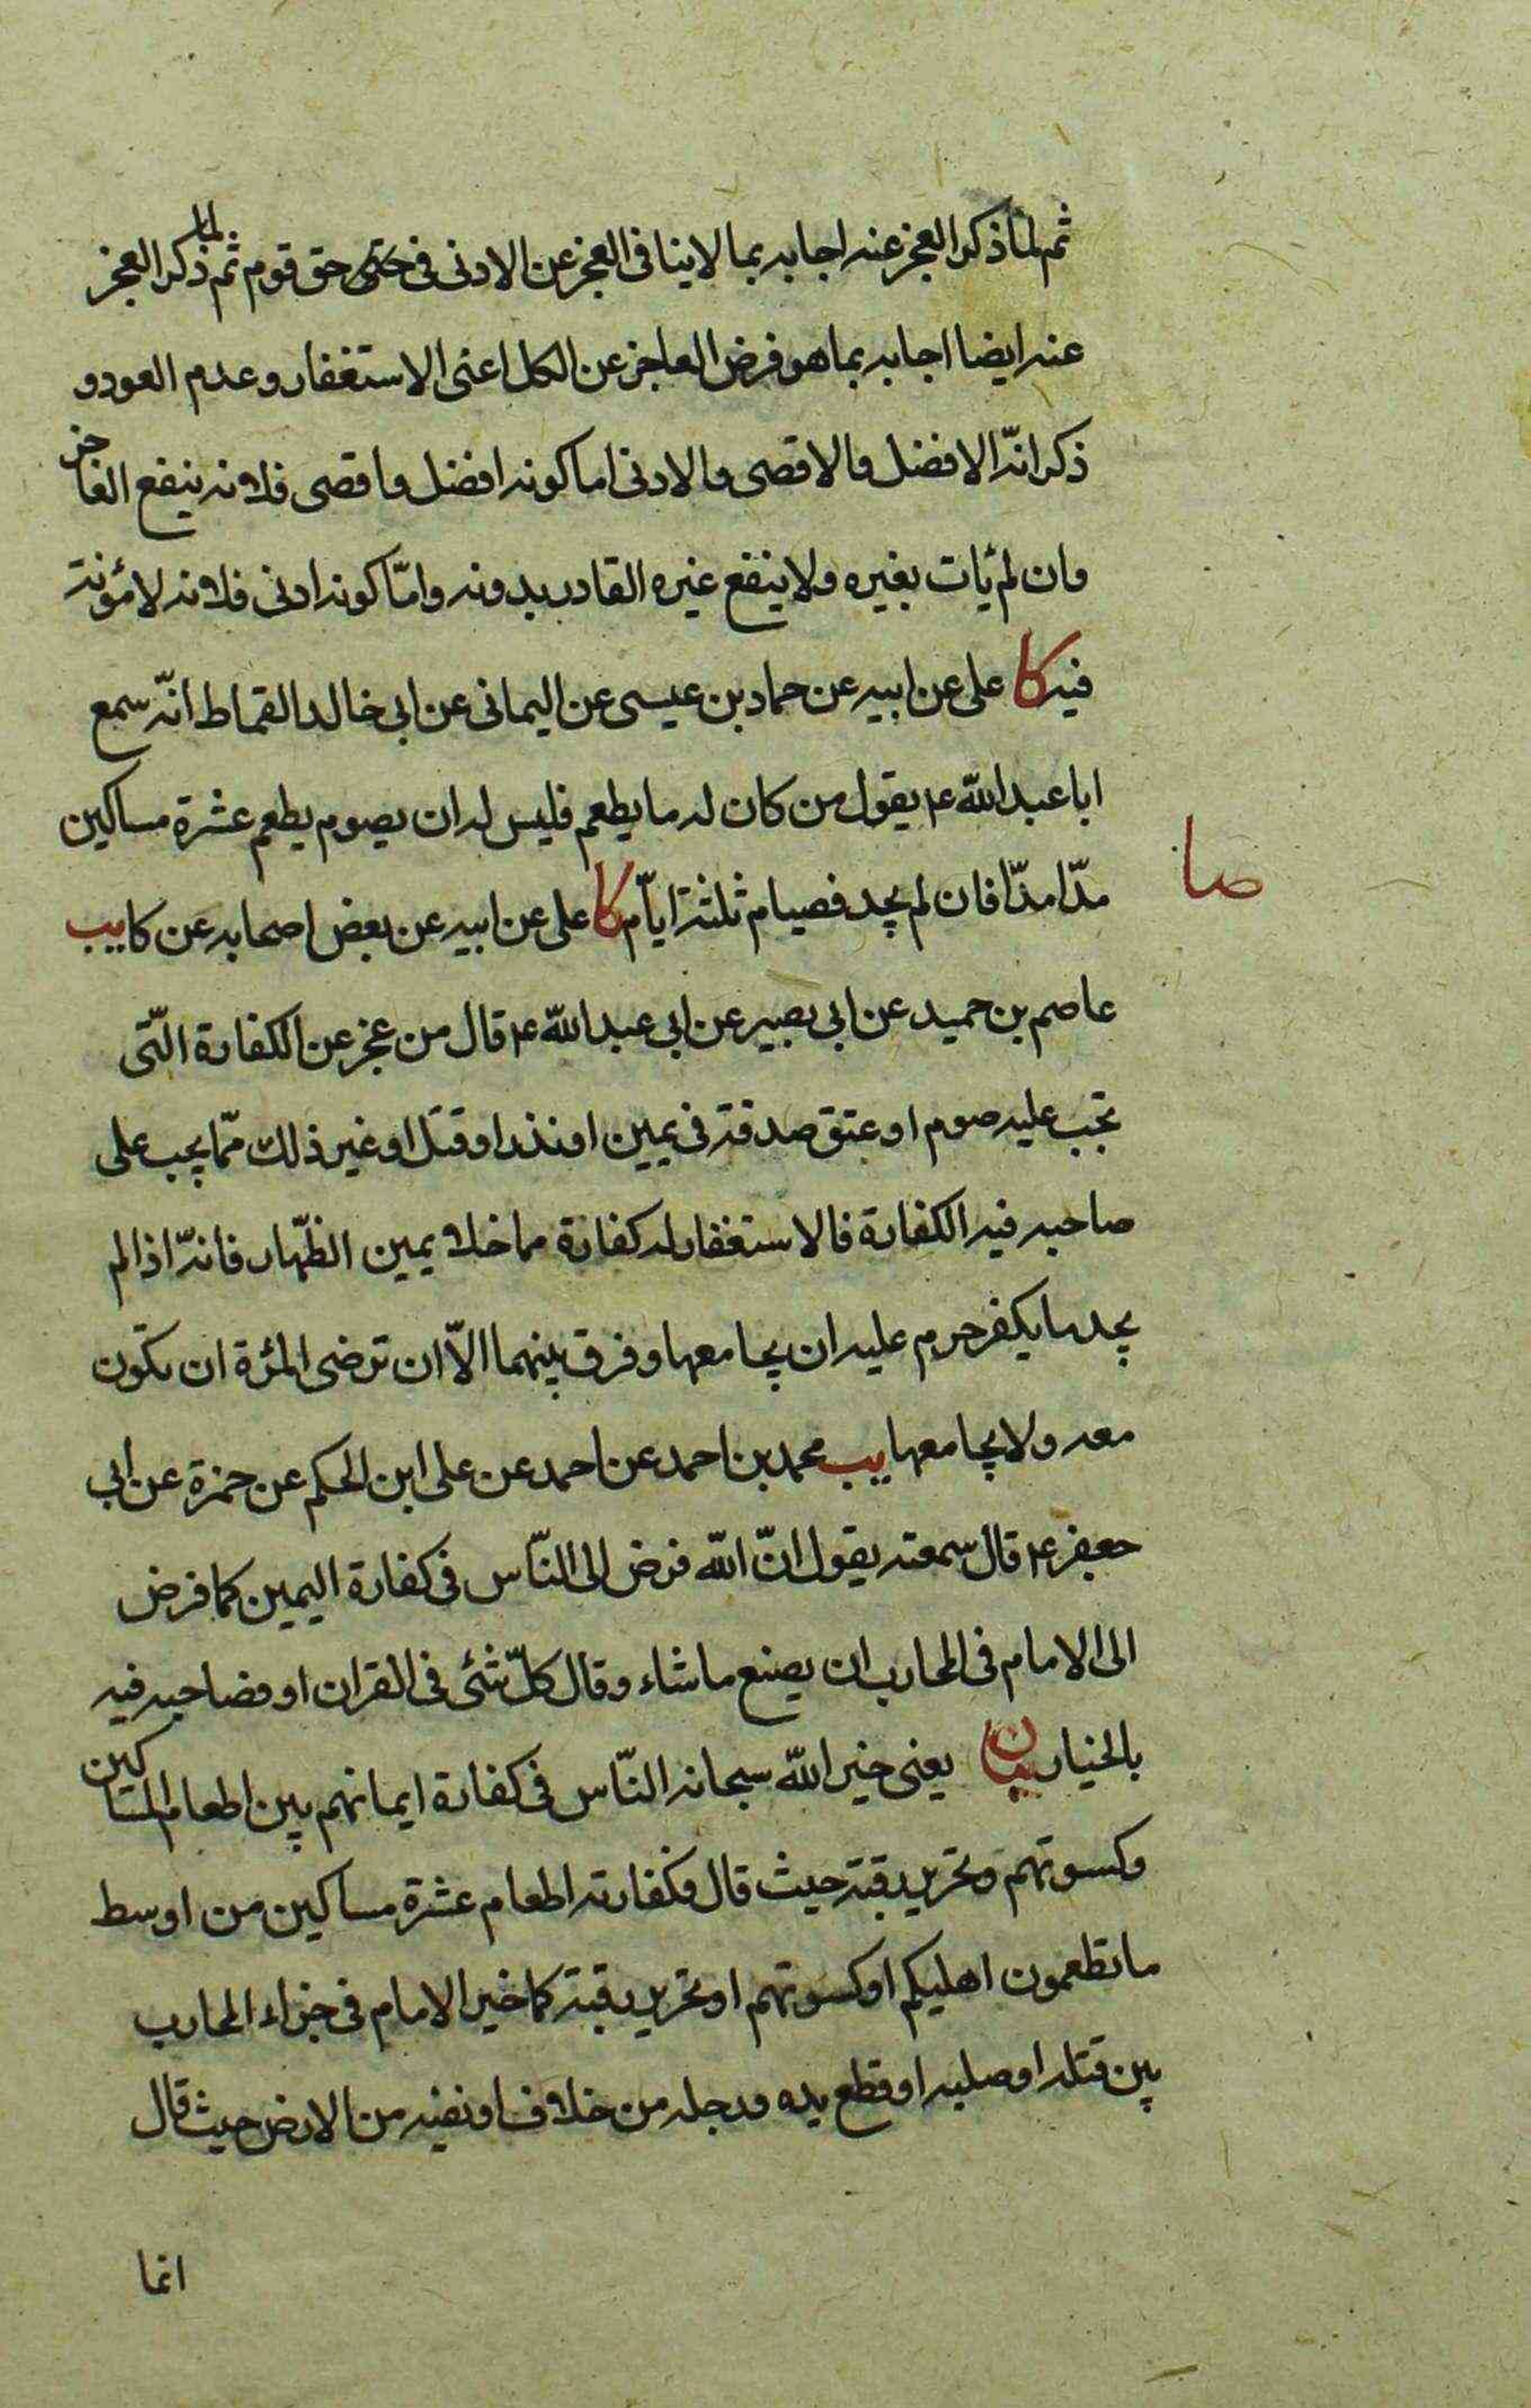 ثم لمّا ذكر العجز عنه اجابه بما لا ينافى العجز عن الادنى فى حق قوم ثم لما ذكر العجز
عنه ايضا اجابه بما هو فرض العاجز عن الكل اعنى الاستغفار وعدم العود و
ذكر انّه الافضل والاقصى والادنى اما كونه افضل واقصى فلانه ينفع العاجز
وان لم يات بغيره ولا ينفع غيره القادر بدونه وامّا كونه ادنى فلانه لا مؤنة
فيه كا على عن ابيه عن حماد بن عيسى عن اليمانى عن ابى خالد القماط انّه سمع
ابا عبد اللّه ع يقول من كان له ما يطعم فليس له ان يصوم يطعم عشرة مساكين
صا
مدّا مدّا فان لم يجد فصيام ثلثة ايّام كا على عن ابيه عن بعض اصحابه عن كا يب
عاصم بن حميد عن ابى بصير عن ابى عبد اللّه ع قال من عجز عن الكفارة الّتى
تجب عليه صوم او عتق صدقة فى يمين او نذر او قتل او غير ذلك ممّا يجب على
صاحبه فيه الكفارة فالاستغفار له كفارة مما خلا يمين الظّهار فانّه اذا لم
يجد ما يكفر حرم عليه ان يجامعها وفرق بينهما الاّ ان ترضى المرئة ان تكون
معه ولا يجامعها يب محمد بن احمد عن احمد عن على ابن الحكم عن حمزة عن ابى
جعفر ع قال سمعته يقول انّ اللّه فوض الى النّاس فى كفارة اليمين كما فوض
الى الامام فى المحارب ان يصنع ما شاء وقال كلّ شئى فى القران او فصاحبه فيه
بالخيار بيان يعنى خير اللّه سبحانه النّاس فى كفارة ايمانهم بين اطعام المساكين
وكسوتهم وتحرير رقبة حيث قال فكفارته اطعام عشرة مساكين من اوسط
ما تطعمون اهليكم او كسوتهم او تحرير رقبة كما خير الامام فى جزاء المحارب
بين قتله او صلبه او قطع يده ورجله من خلاف او نفيه من الارض حيث قال
انما